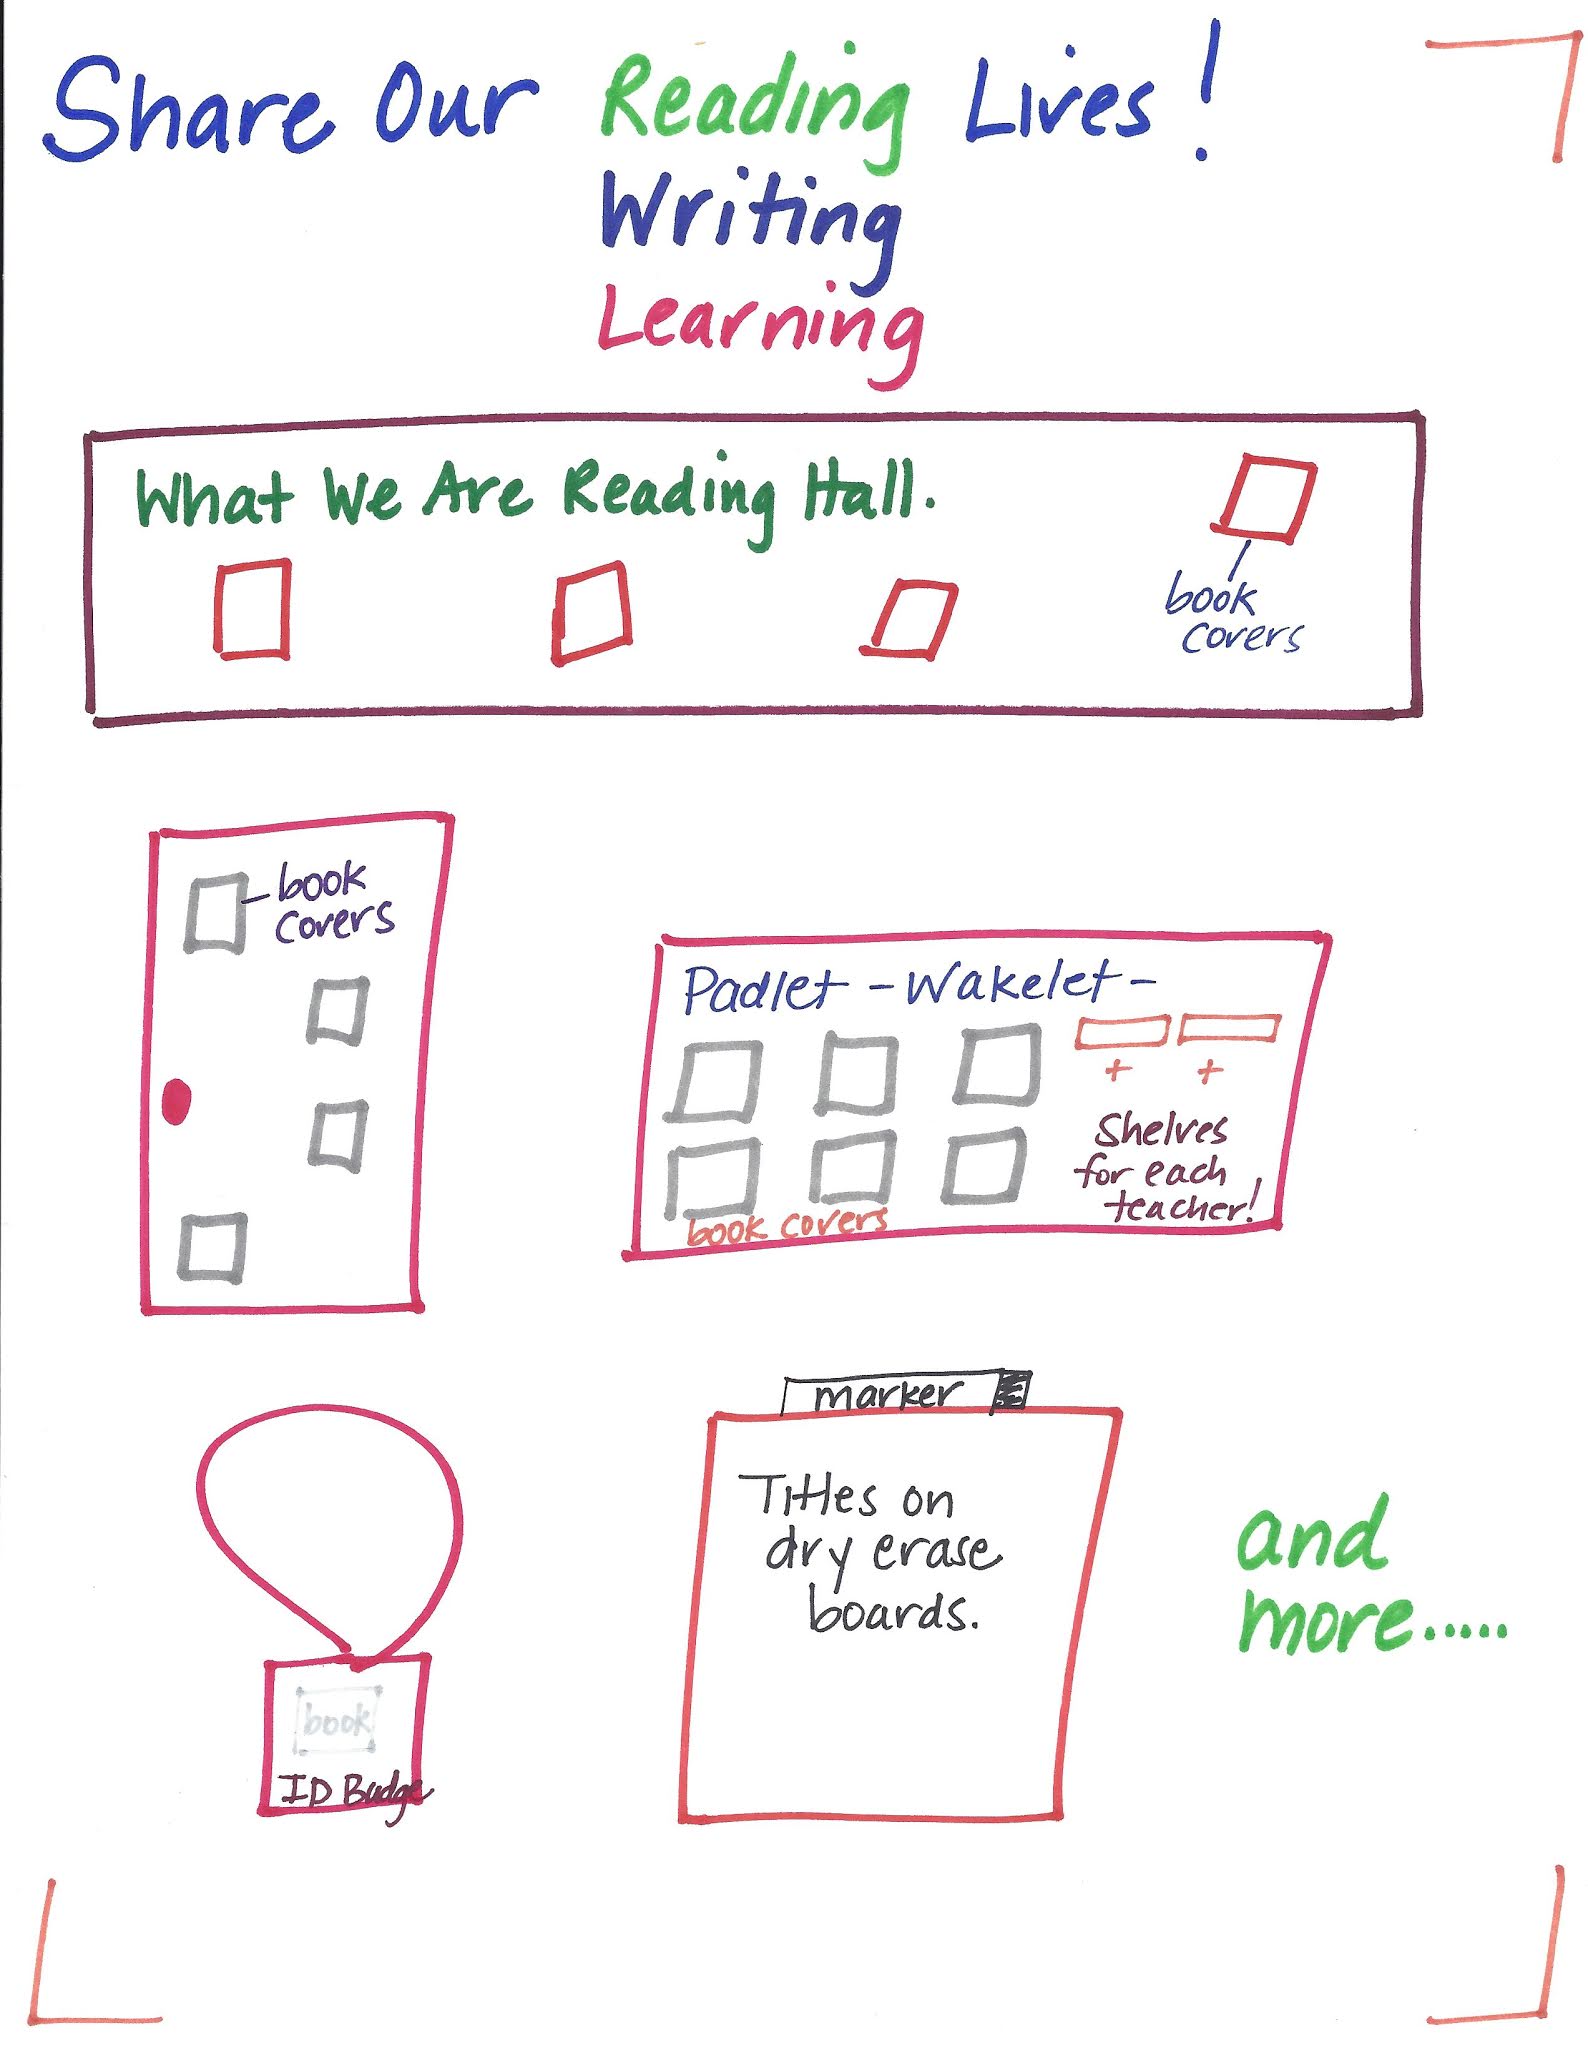 Share Our Reading Lives!
Writing
Learning
What We Are Reading Hall.
book
covers
book
covers
Padlet - Wakelet -
+ +
Shelves
for each
teacher!
book covers
marker
Titles on
dry erase
boards.
and
more.....
book
ID Badge